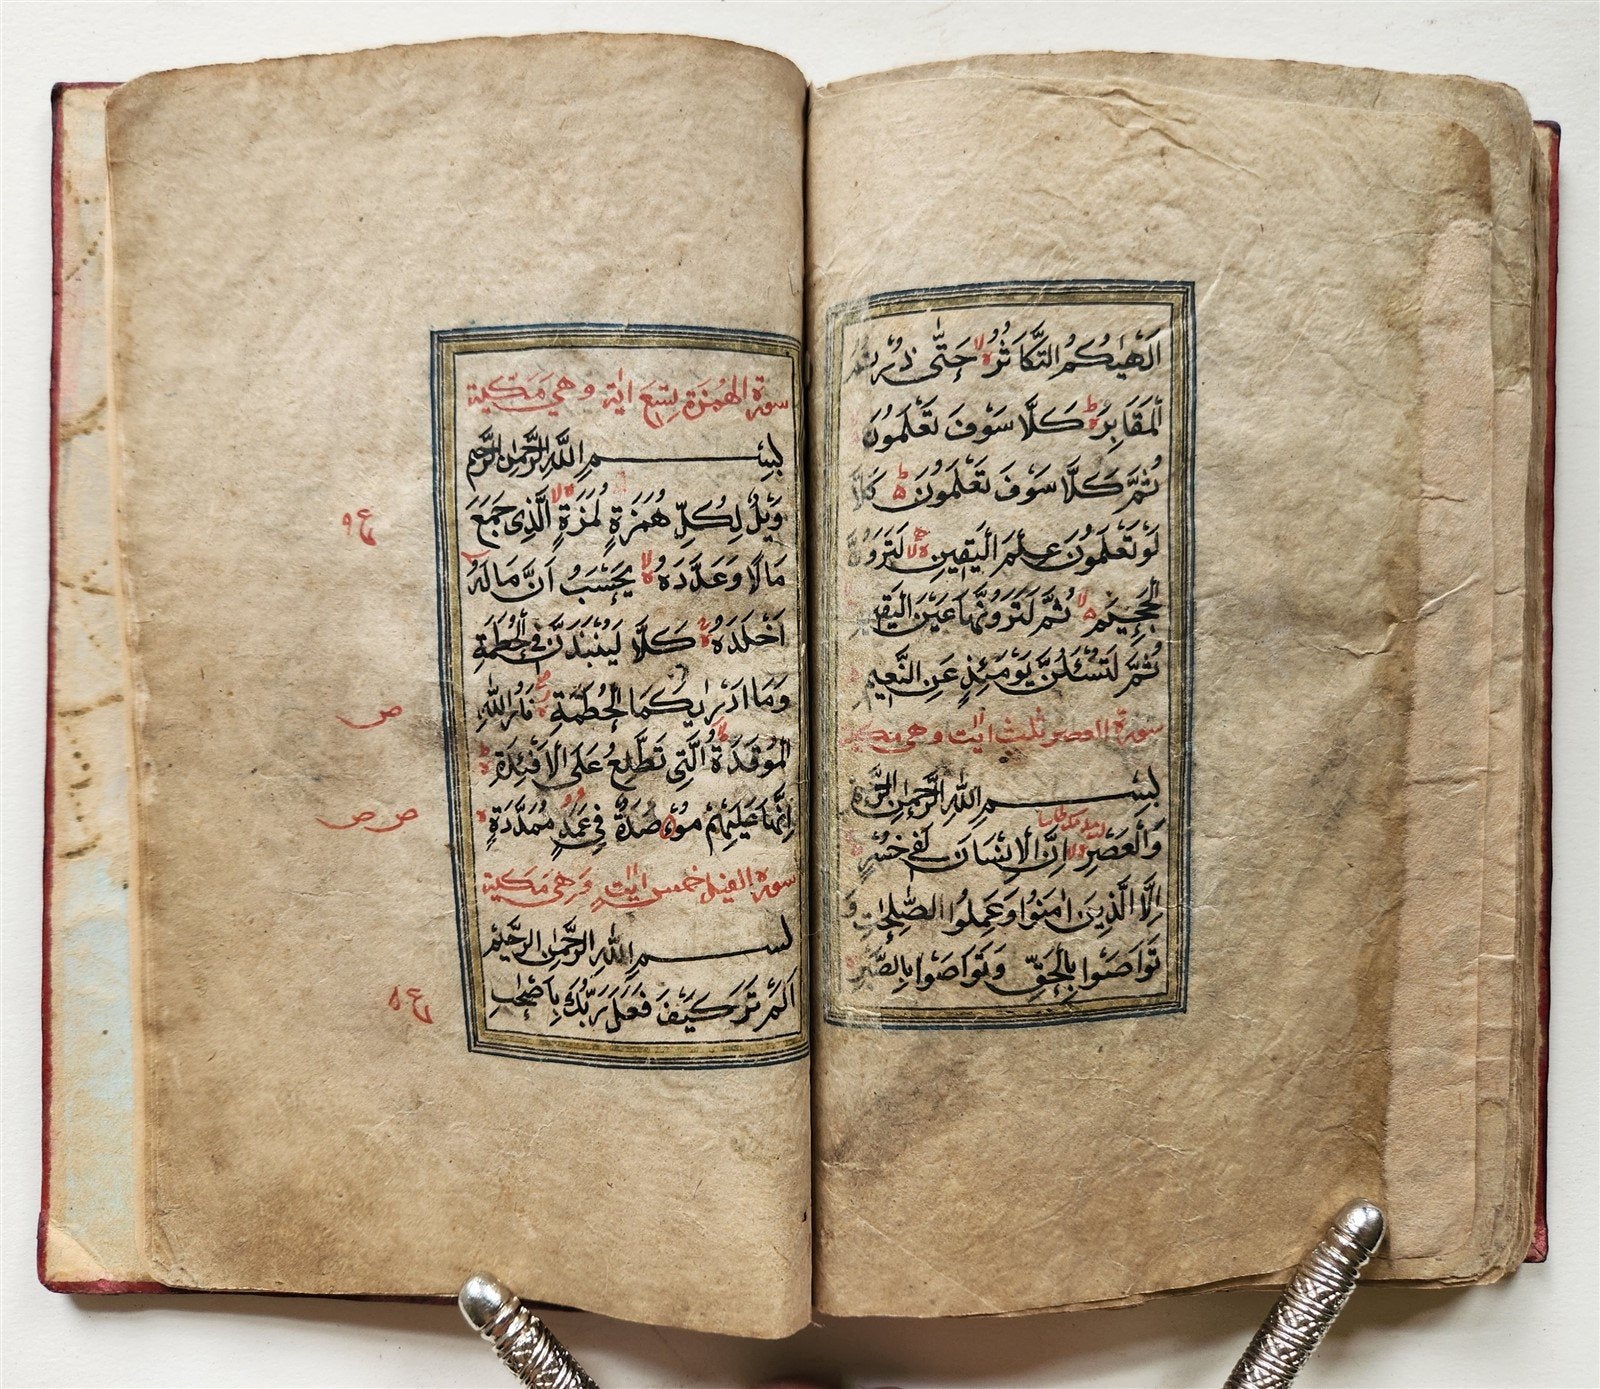 اَلْهٰيكُمُ التَّكَاثُرُ لا حَتّٰى زُرْتُمُ
الْمَقَابِرَ ط كَلَّا سَوْفَ تَعْلَمُونَ
ثُمَّ كَلَّا سَوْفَ تَعْلَمُونَ ط كَلَّا
لَوْ تَعْلَمُونَ عِلْمَ الْيَقِينِ لا لَتَرَوُنَّ
الْجَحِيمَ لا ثُمَّ لَتَرَوُنَّهَا عَيْنَ الْيَقِينِ
ثُمَّ لَتُسْئَلُنَّ يَوْمَئِذٍ عَنِ النَّعِيمِ
سورة العصر ثلث اٰيٰت وهي مكية
بِسْمِ اللّٰهِ الرَّحْمٰنِ الرَّحِيمِ
وَالْعَصْرِ لا اِنَّ الْاِنْسَانَ لَفِي خُسْرٍ
اِلَّا الَّذِينَ اٰمَنُوا وَعَمِلُوا الصّٰلِحٰتِ وَ
تَوَاصَوْا بِالْحَقِّ وَتَوَاصَوْا بِالصَّبْرِ
سورة الهُمَزَة تِسْعَ اٰية وهي مَكّية
بِسْمِ اللّٰهِ الرَّحْمٰنِ الرَّحِيمِ
وَيْلٌ لِكُلِّ هُمَزَةٍ لُمَزَةٍ لا الَّذِى جَمَعَ
مَالًا وَعَدَّدَهُ لا يَحْسَبُ اَنَّ مَالَهُ
اَخْلَدَهُ ج كَلَّا لَيُنْبَذَنَّ فِي الْحُطَمَةِ
وَمَا اَدْرٰيكَ مَا الْحُطَمَةُ نَارُ اللّٰهِ
الْمُوقَدَةُ لا الَّتِي تَطَّلِعُ عَلَى الْاَفْئِدَةِ ط
اِنَّهَا عَلَيْهِمْ مُوْءصَدَةٌ فِي عَمَدٍ مُمَدَّدَةٍ
سورة الفيل خمس اٰيٰت وَهي مَكية
بسم اللّٰهِ الرَّحْمٰنِ الرَّحِيْم
اَلَمْ تَرَ كَيْفَ فَعَلَ رَبُّكَ بِاَصْحٰبِ
ع ٩
ص
ص ص
ع ٨